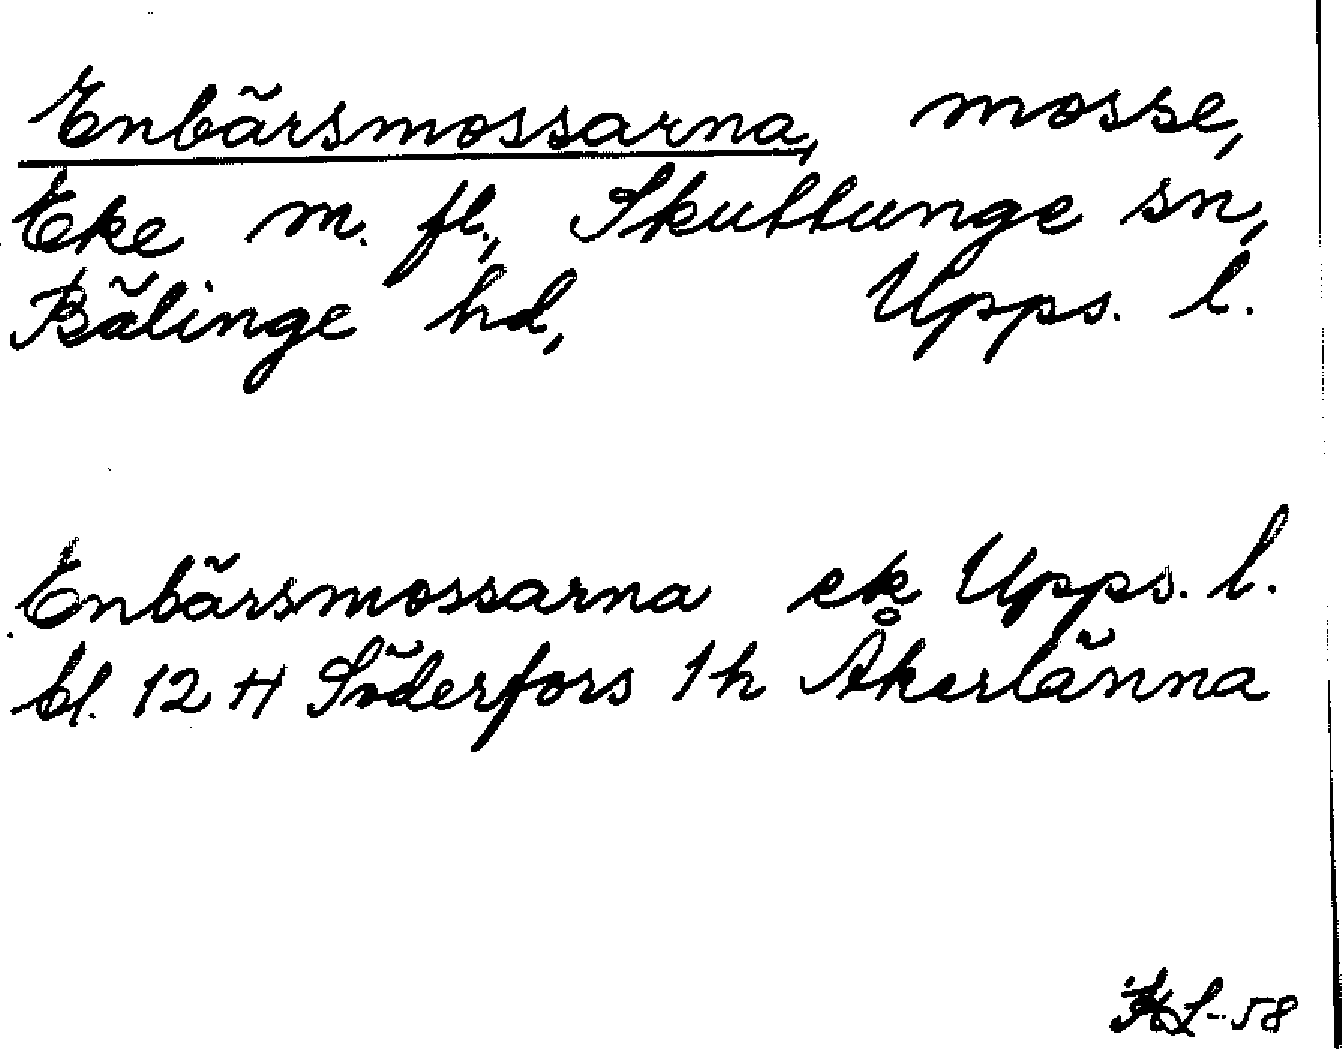 Enbärsmossarna, mosse,
Eke m. fl., Skuttunge sn,
Bälinge hd, Upps. l.
Enbärsmossarna ek Upps. l.
bl. 12 H Söderfors 1h Åkerlänna
HL-58